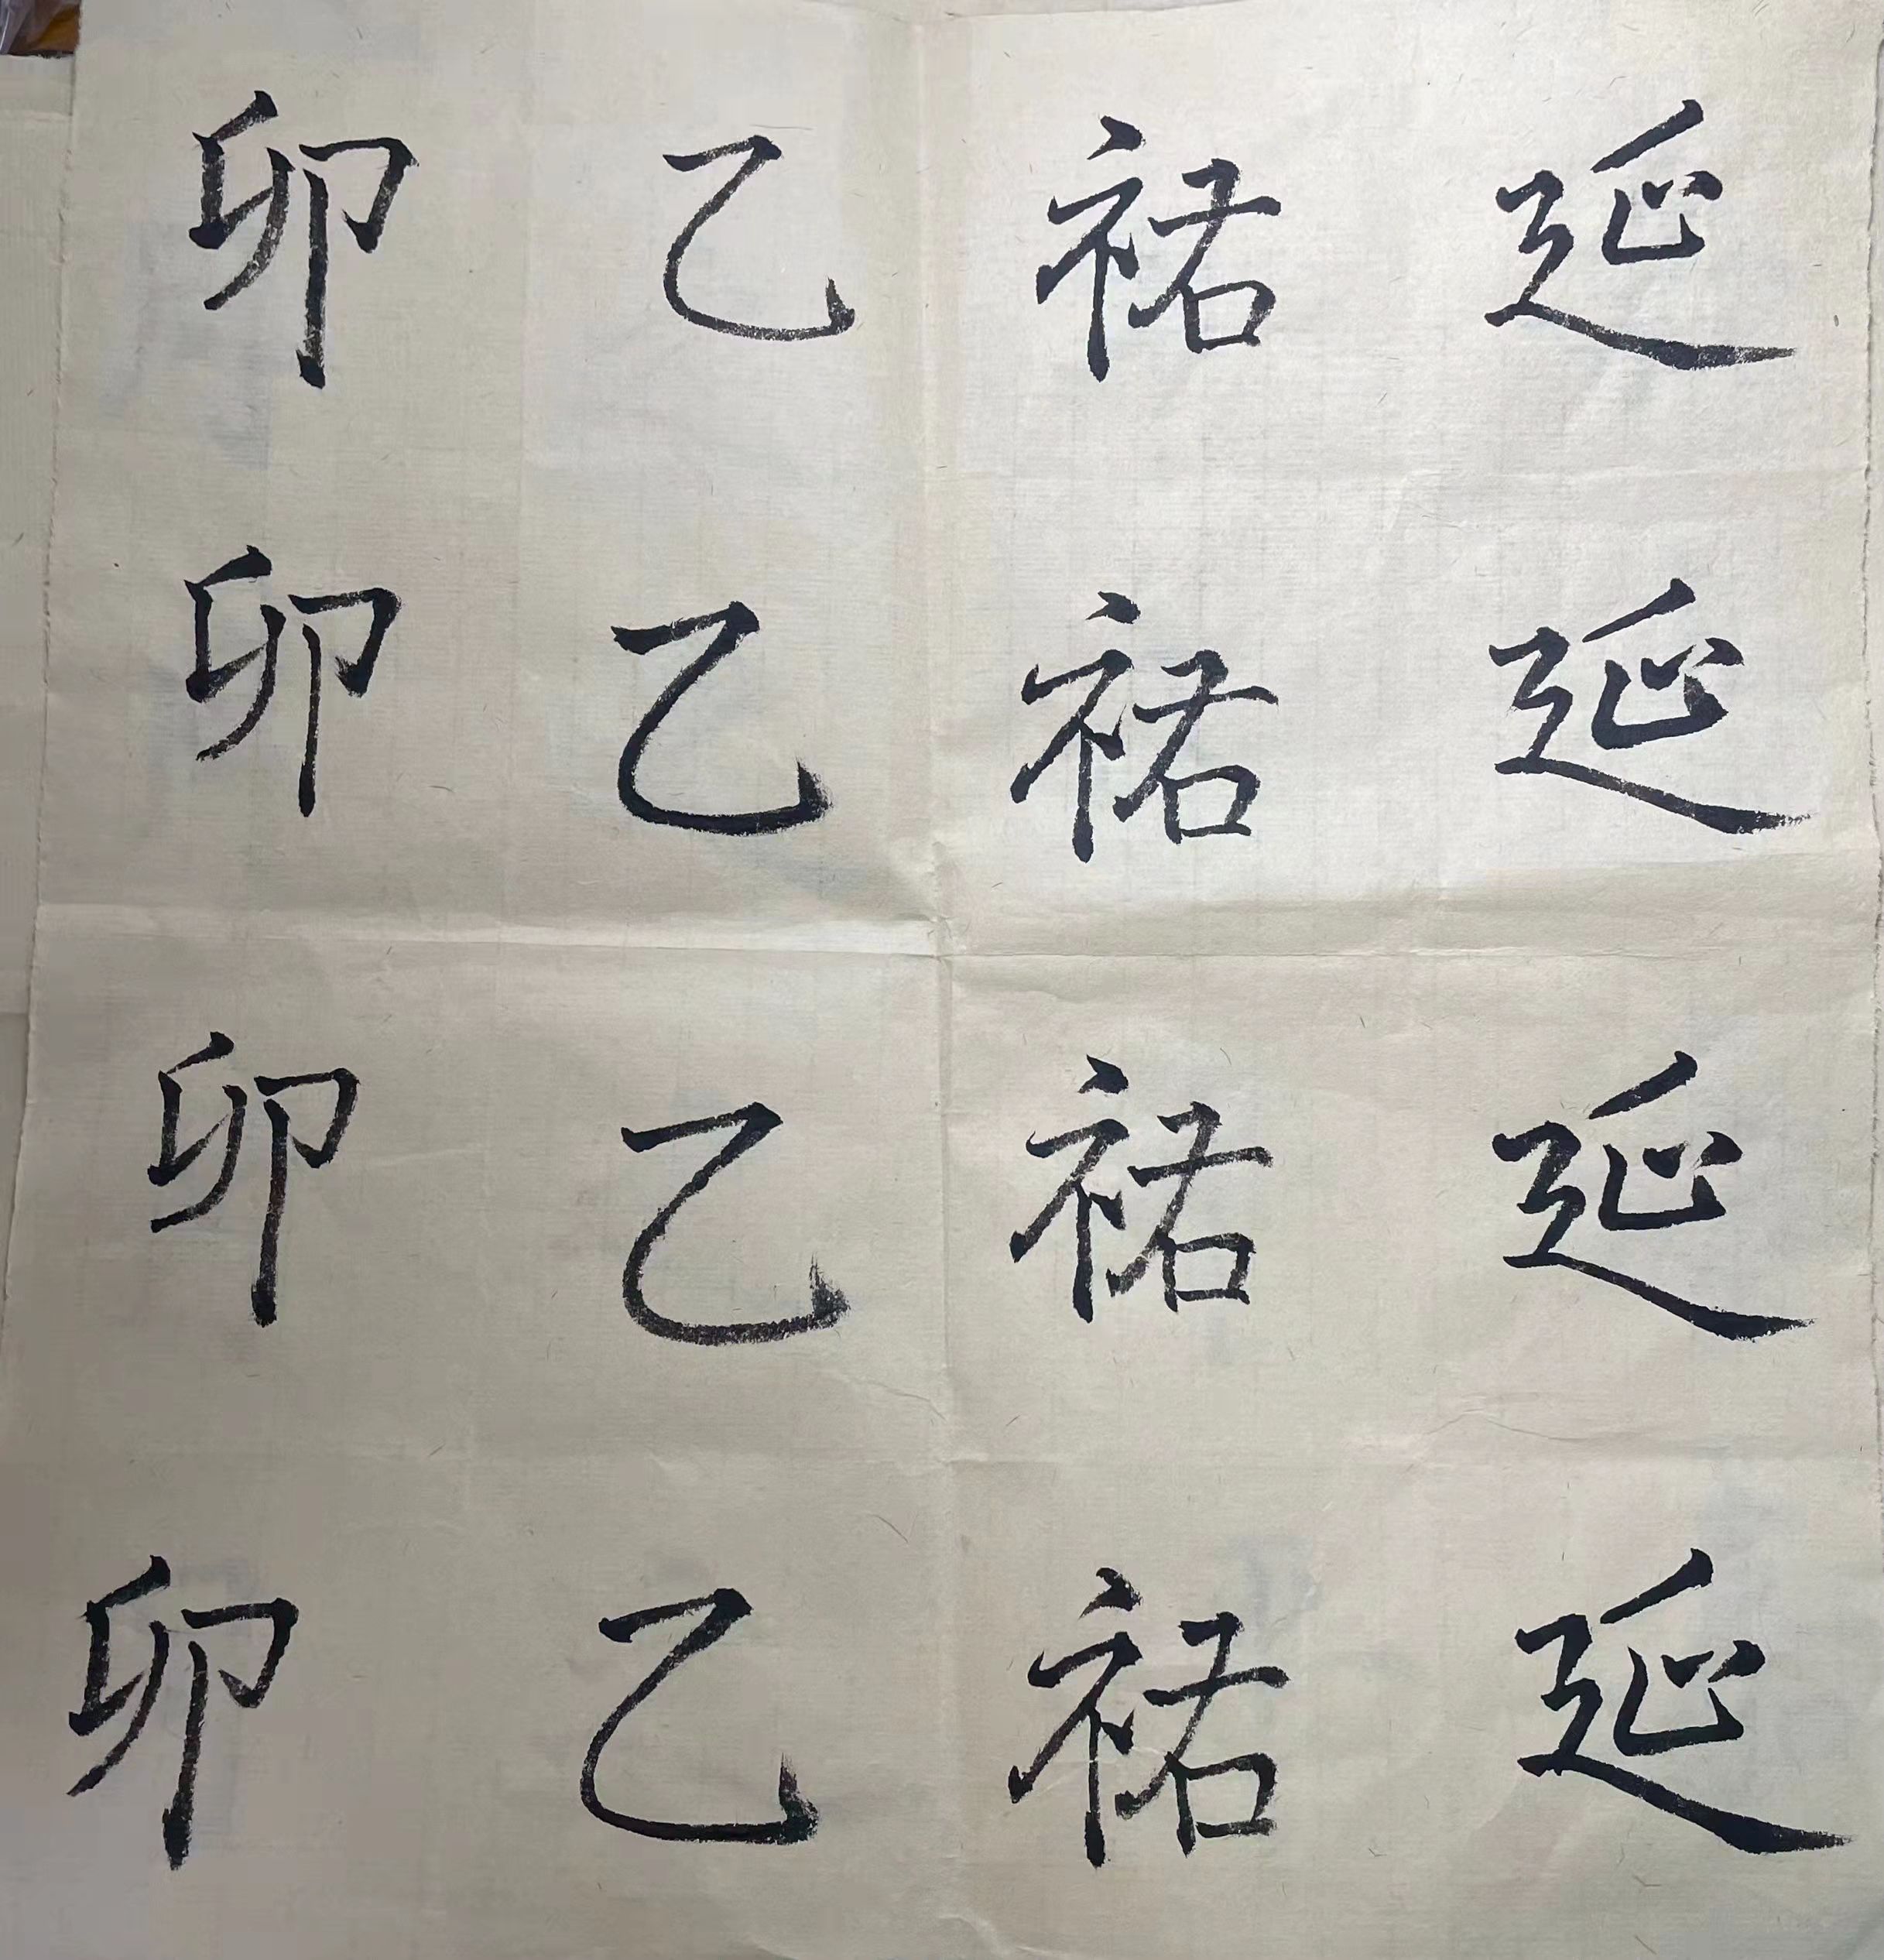 延延延延
祐祐祐祐
乙乙乙乙
卯卯卯卯